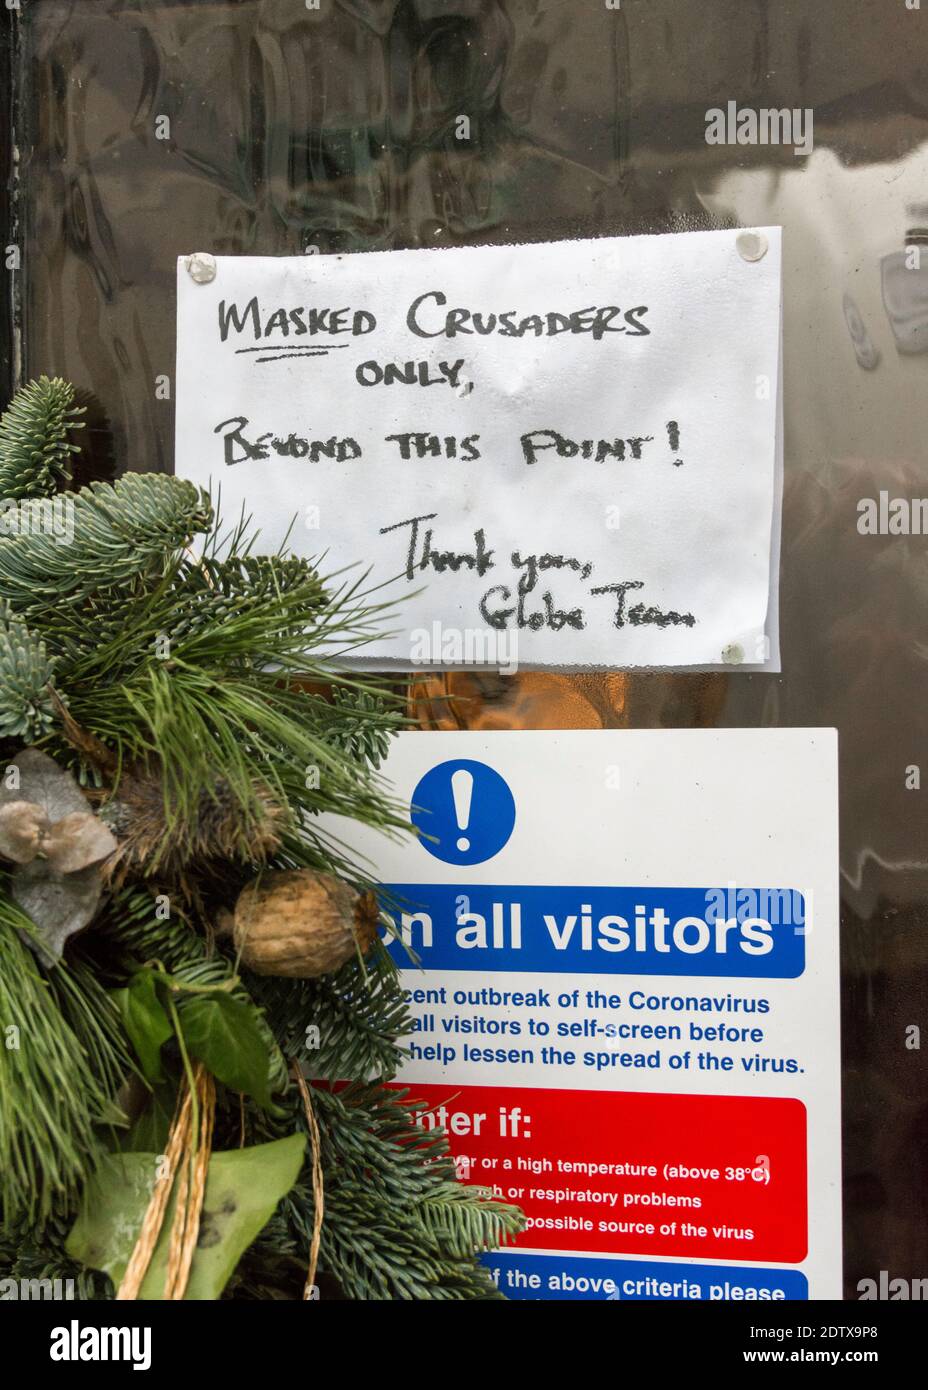 MASKED CRUSADERS
ONLY,
BEYOND THIS POINT!
Thank you,
Globe Team
!
on all visitors
recent outbreak of the Coronavirus
all visitors to self-screen before
help lessen the spread of the virus.
enter if:
or a high temperature (above 38°C)
or respiratory problems
possible source of the virus
of the above criteria please
alamy
alamy
Image ID: 2DTX9P8
www.alamy.com